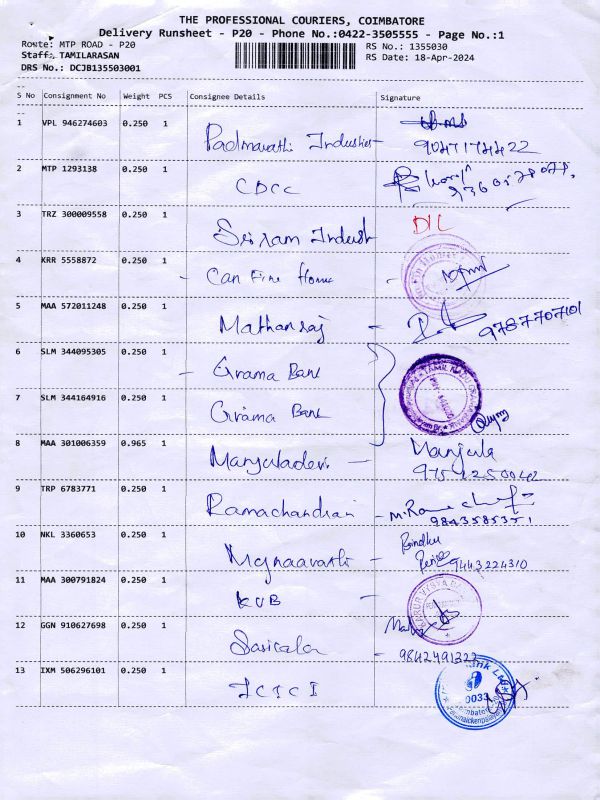 THE PROFESSIONAL COURIERS, COIMBATORE
Delivery Runsheet - P20 - Phone No.:0422-3505555 - Page No.:1
Route: MTP ROAD - P20 RS No.: 1355030
Staff: TAMILARASAN RS Date: 18-Apr-2024
DRS No.: DCJB135503001
S No Consignment No Weight PCS Consignee Details Signature
1 VPL 946274603 0.250 1 Padmavathi Industries
9047174422
2 MTP 1293138 0.250 1 CDCC
3 TRZ 300009558 0.250 1 Sriram Indust D/L
4 KRR 5558872 0.250 1 - Can Fine Home
5 MAA 572011248 0.250 1 Mathanraj - 9787707101
6 SLM 344095305 0.250 1 - Grama Bank
7 SLM 344164916 0.250 1 Grama Bank
8 MAA 301006359 0.965 1 Manjuladevi - Manjula
9754250042
9 TRP 6783771 0.250 1 Ramachandran - M. Rama
9843585351
10 NKL 3360653 0.250 1 - Bindhu
9443224310
11 MAA 300791824 0.250 1 KVB - KARUR VYSYA
12 GGN 910627698 0.250 1 Sasikala - 9842491322
13 IXM 506296101 0.250 1 ICICI